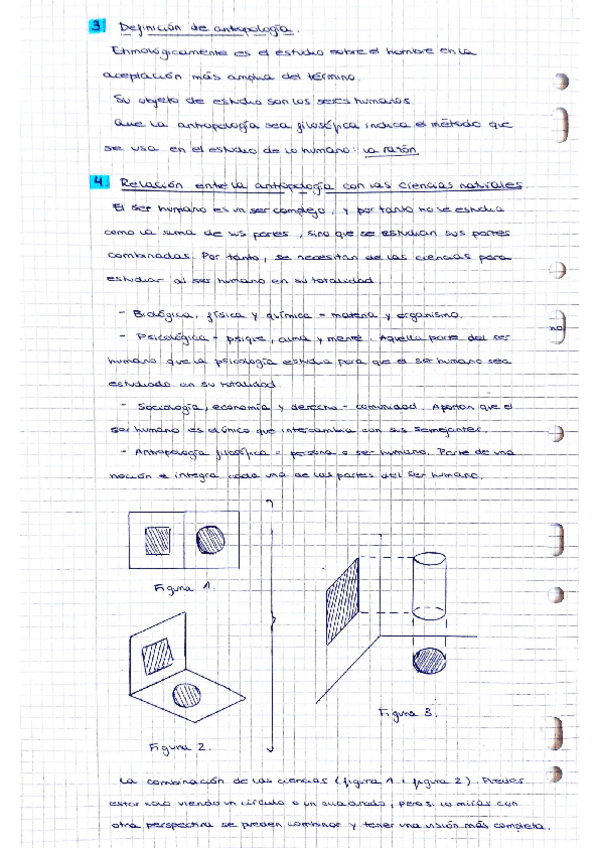 3. Definición de antropología.
Etimológicamente es el estudio sobre el hombre en la
aceptación más amplia del término.
Su objeto de estudio son los seres humanos.
Que la antropología sea filosófica indica el método que
se usa en el estudio de lo humano: la razón.
4. Relación entre la antropología con las ciencias naturales
El ser humano es un ser complejo, y por tanto no se estudia
como la suma de sus partes, sino que se estudian sus partes
combinadas. Por tanto, se necesitan de las ciencias para
estudiar al ser humano en su totalidad.
- Biológica, física y química = materia y organismo.
- Psicológica - psique, alma y mente. Aquella parte del ser
humano que la psicología estudia para que el ser humano sea
estudiado en su totalidad.
- Sociología, economía y derecho - comunidad. Aportan que el
ser humano es el único que intercambia con sus semejantes.
- Antropología filosófica = persona o ser humano. Parte de una
noción e integra cada una de las partes del ser humano.
Figura 1.
Figura 2.
Figura 3.
La combinación de las ciencias (figura 1 y figura 2). Puedes
estar solo viendo un círculo o un cuadrado, pero si lo miras con
otra perspectiva se pueden combinar y tener una visión más completa.
no